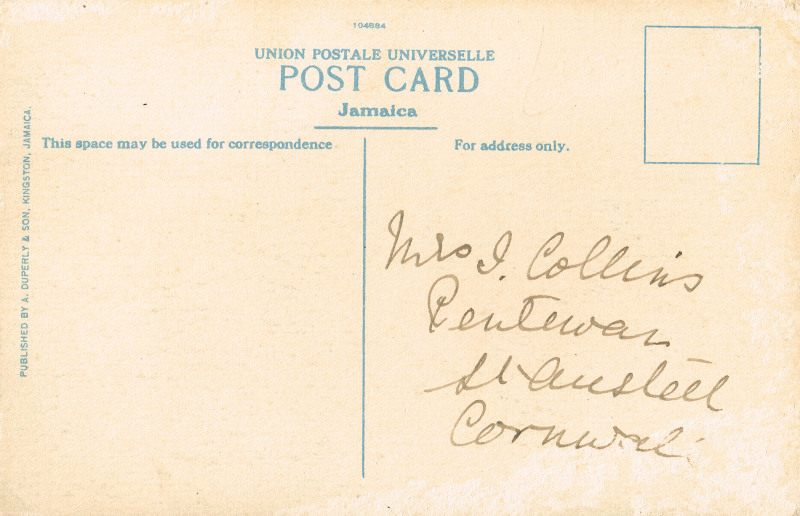 104684
UNION POSTALE UNIVERSELLE
POST CARD
Jamaica
This space may be used for correspondence
For address only.
PUBLISHED BY A. DUPERLY & SON, KINGSTON, JAMAICA.
Mrs J. Collins
Pentewan
St Austell
Cornwal